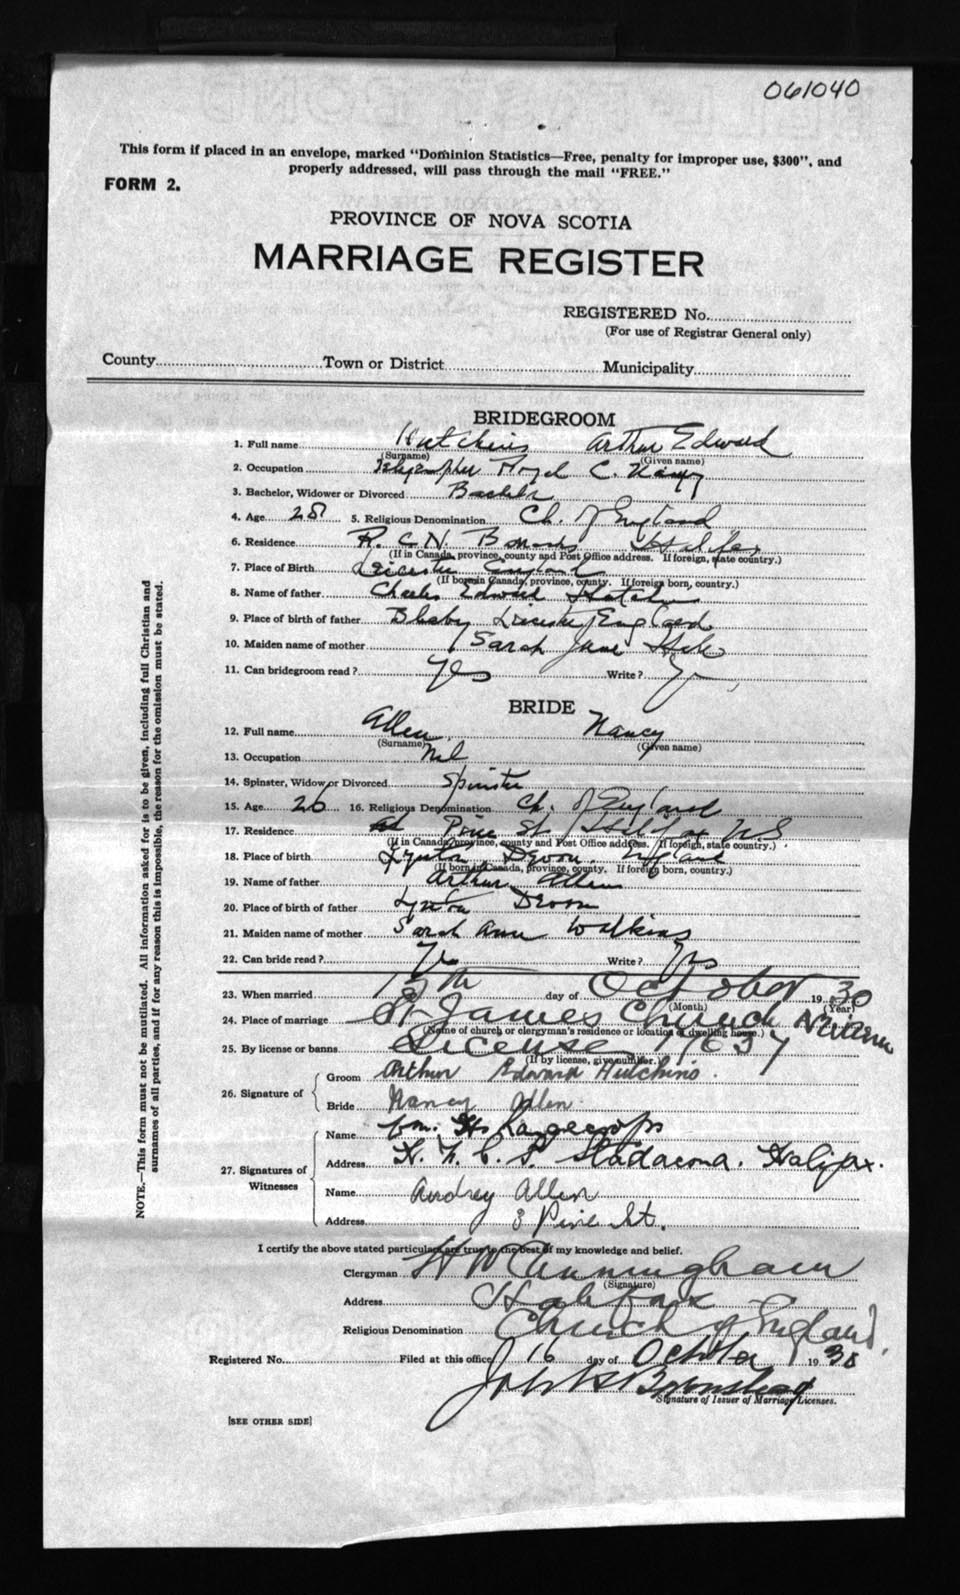 061040
This form if placed in an envelope, marked "Dominion Statistics—Free, penalty for improper use, $300", and
properly addressed, will pass through the mail "FREE."
FORM 2.
PROVINCE OF NOVA SCOTIA
MARRIAGE REGISTER
REGISTERED No.
(For use of Registrar General only)
County Town or District Municipality
BRIDEGROOM
1. Full name Hutchins Arthur Edward
(Surname) (Given name)
2. Occupation Telegrapher Royal C. Navy
3. Bachelor, Widower or Divorced Bachelor
4. Age 28 5. Religious Denomination Ch. of England
6. Residence R. C. N. Barracks Halifax
(If in Canada, province, county and Post Office address. If foreign, state country.)
7. Place of Birth Leicester England
(If born in Canada, province, county. If foreign born, country.)
8. Name of father Charles Edward Hutchins
9. Place of birth of father Blaby Leicester England
10. Maiden name of mother Sarah Jane
11. Can bridegroom read? Yes Write? Yes
BRIDE
12. Full name Allen Nancy
(Surname) (Given name)
13. Occupation Nil
14. Spinster, Widow or Divorced Spinster
15. Age 26 16. Religious Denomination Ch. of England
17. Residence Pine St Halifax N.S.
(If in Canada, province, county and Post Office address. If foreign, state country.)
18. Place of birth Lynton Devon. England
(If born in Canada, province, county. If foreign born, country.)
19. Name of father Arthur Allen
20. Place of birth of father Lynton Devon
21. Maiden name of mother Sarah Ann Watkins
22. Can bride read? Yes Write? Yes
23. When married 15th day of October 1930
(Month) (Year)
24. Place of marriage St James Church
(Name of church or clergyman's residence or location of dwelling house.)
25. By license or banns License 77637
(If by license, give number.)
26. Signature of
Groom Arthur Edward Hutchins.
Bride Nancy Allen
27. Signatures of Witnesses
Name Wm. Hs
Address H. M. C. S. Stadacona. Halifax.
Name Audrey Allen
Address 3 Pine St.
I certify the above stated particulars are true to the best of my knowledge and belief.
Clergyman H W Cunningham
(Signature)
Address Halifax
Religious Denomination Church of England.
Registered No. Filed at this office 16 day of October 1930
Signature of Issuer of Marriage Licenses.
[SEE OTHER SIDE]
NOTE.—This form must not be mutilated. All information asked for is to be given, including full Christian and
surnames of all parties, and if for any reason this is impossible, the reason for the omission must be stated.